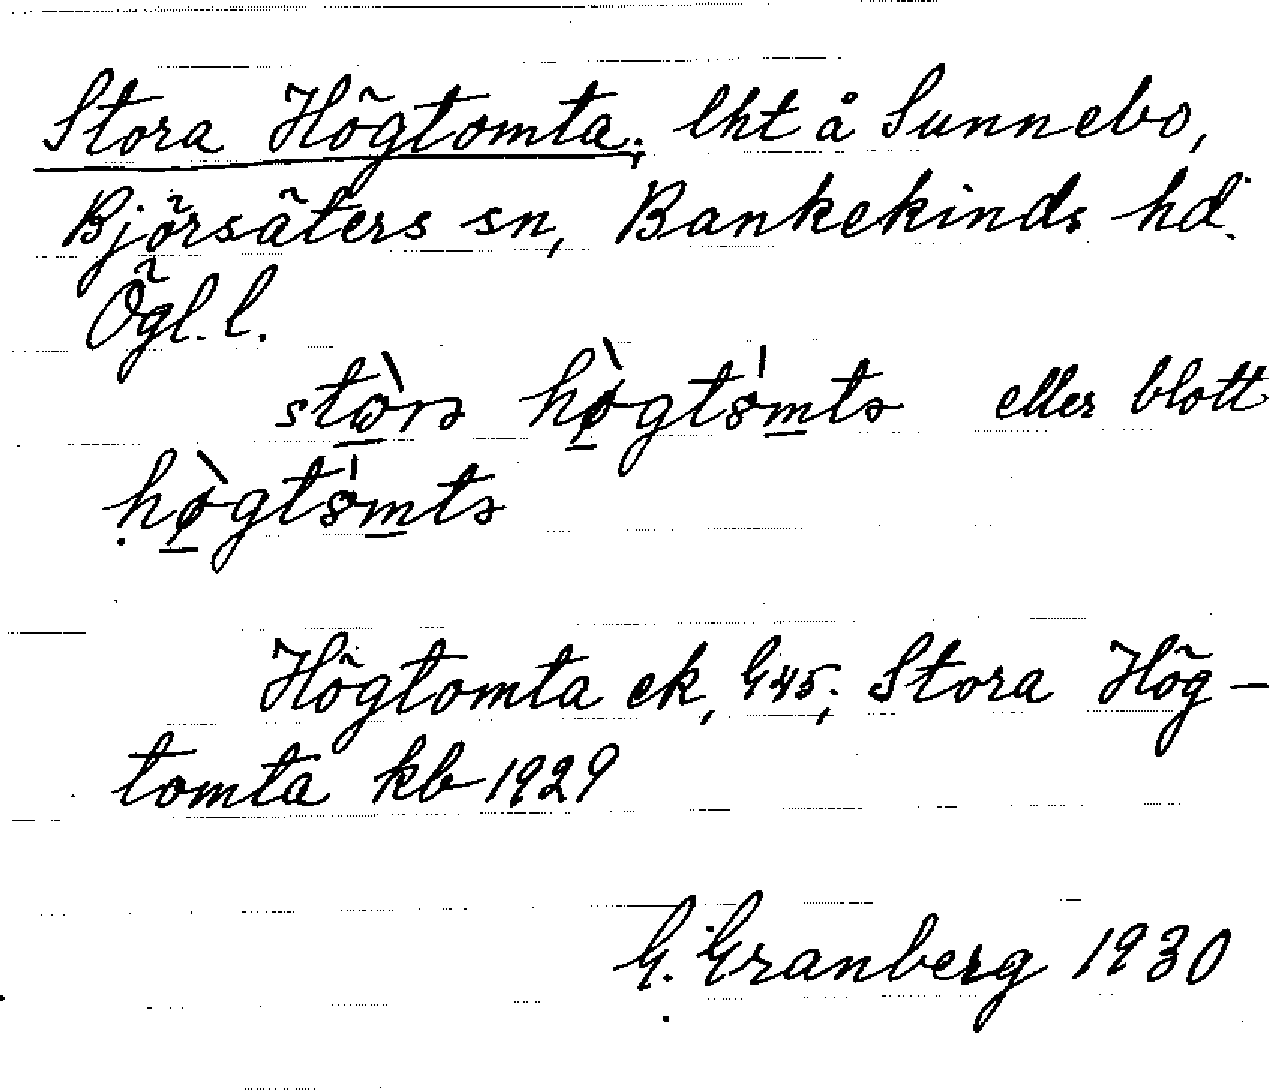 Stora Högtomta, lht å Sunnebo,
Björsäters sn, Bankekinds hd.
Ögl. l.
stòrə hø̀gtómtə eller blott
hø̀gtómtə
Högtomta ek, G45; Stora Hög-
tomta kb 1929
G. Granberg 1930